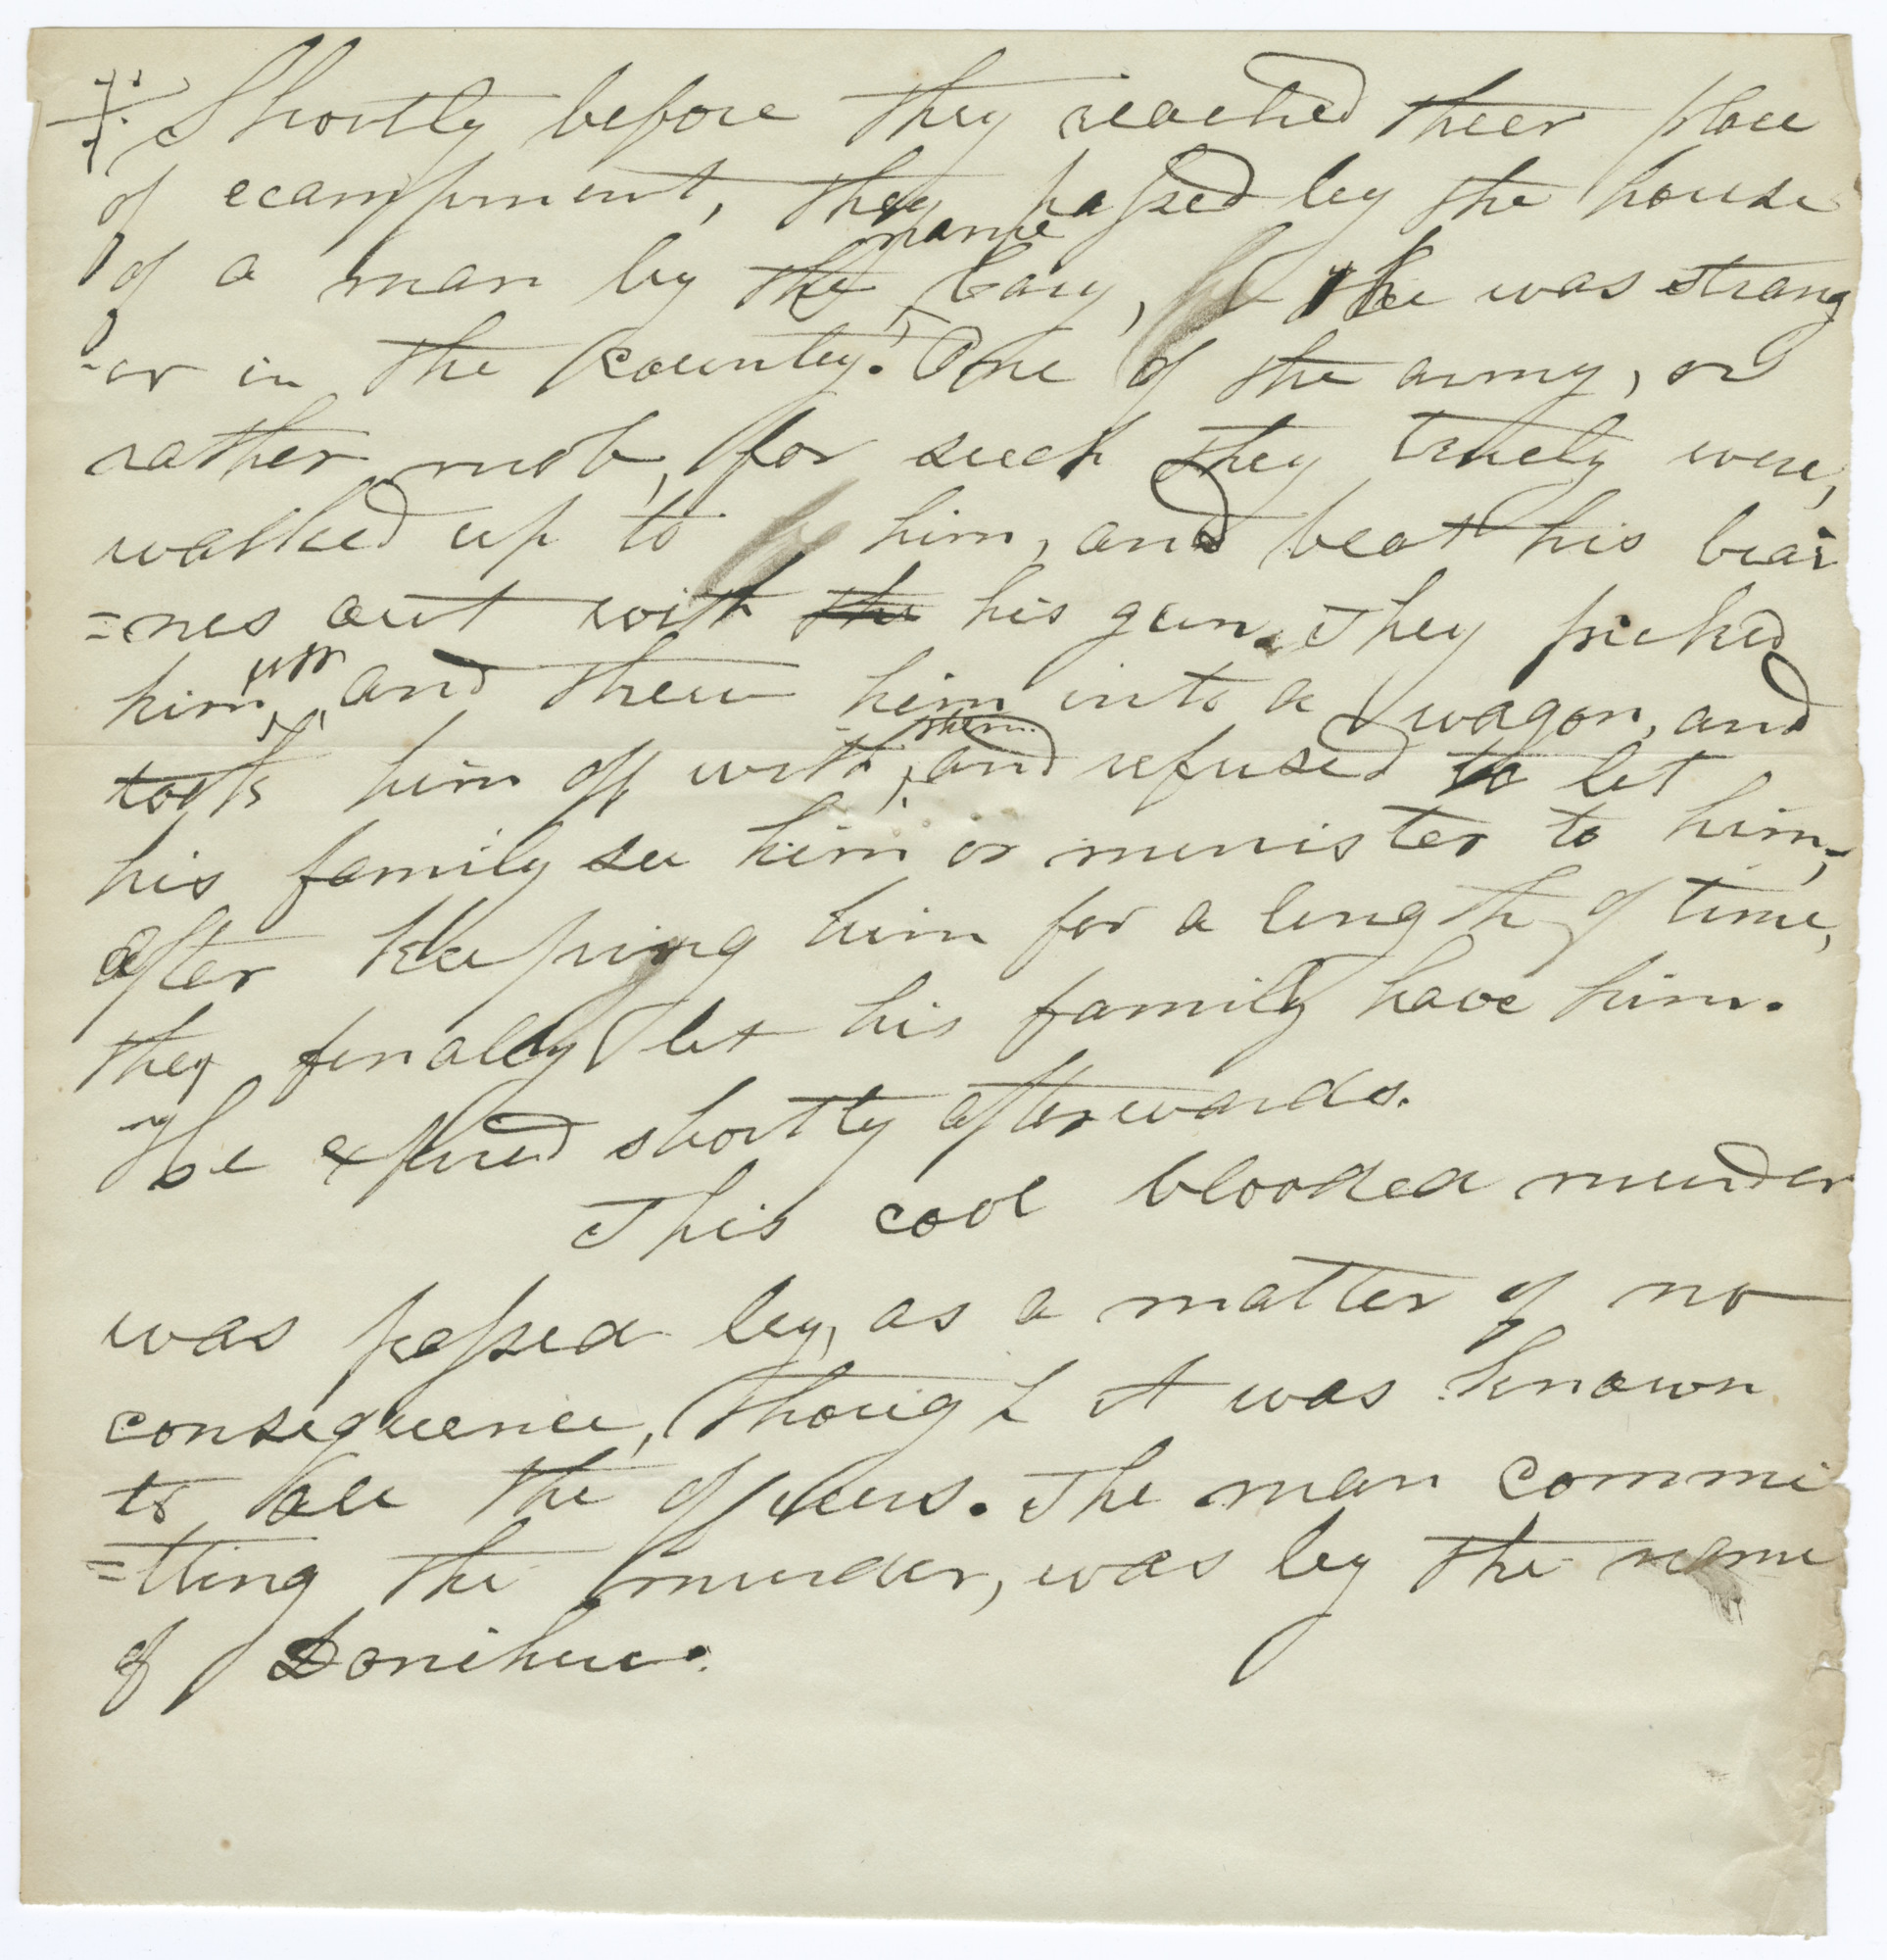 Shortly before they reached their place
of ecampment, they passed by the house
of a man by the name Cary, he was strang
-er in the country. One of the army, or
rather mob, for such they truely were,
walked up to him, and beat his brai
=nes out with the his gun. They picked
him up and threw him into a wagon, and
took him off with them and refused to let
his family see him or minister to him;
after keeping him for a length of time,
they finally let his family have him.
He expired shortly afterwards.
This cool blooded murder
was passed by, as a matter of no
consequence, though it was known
to all the officers. The man commi
=tting the murder, was by the name
of Donihue.